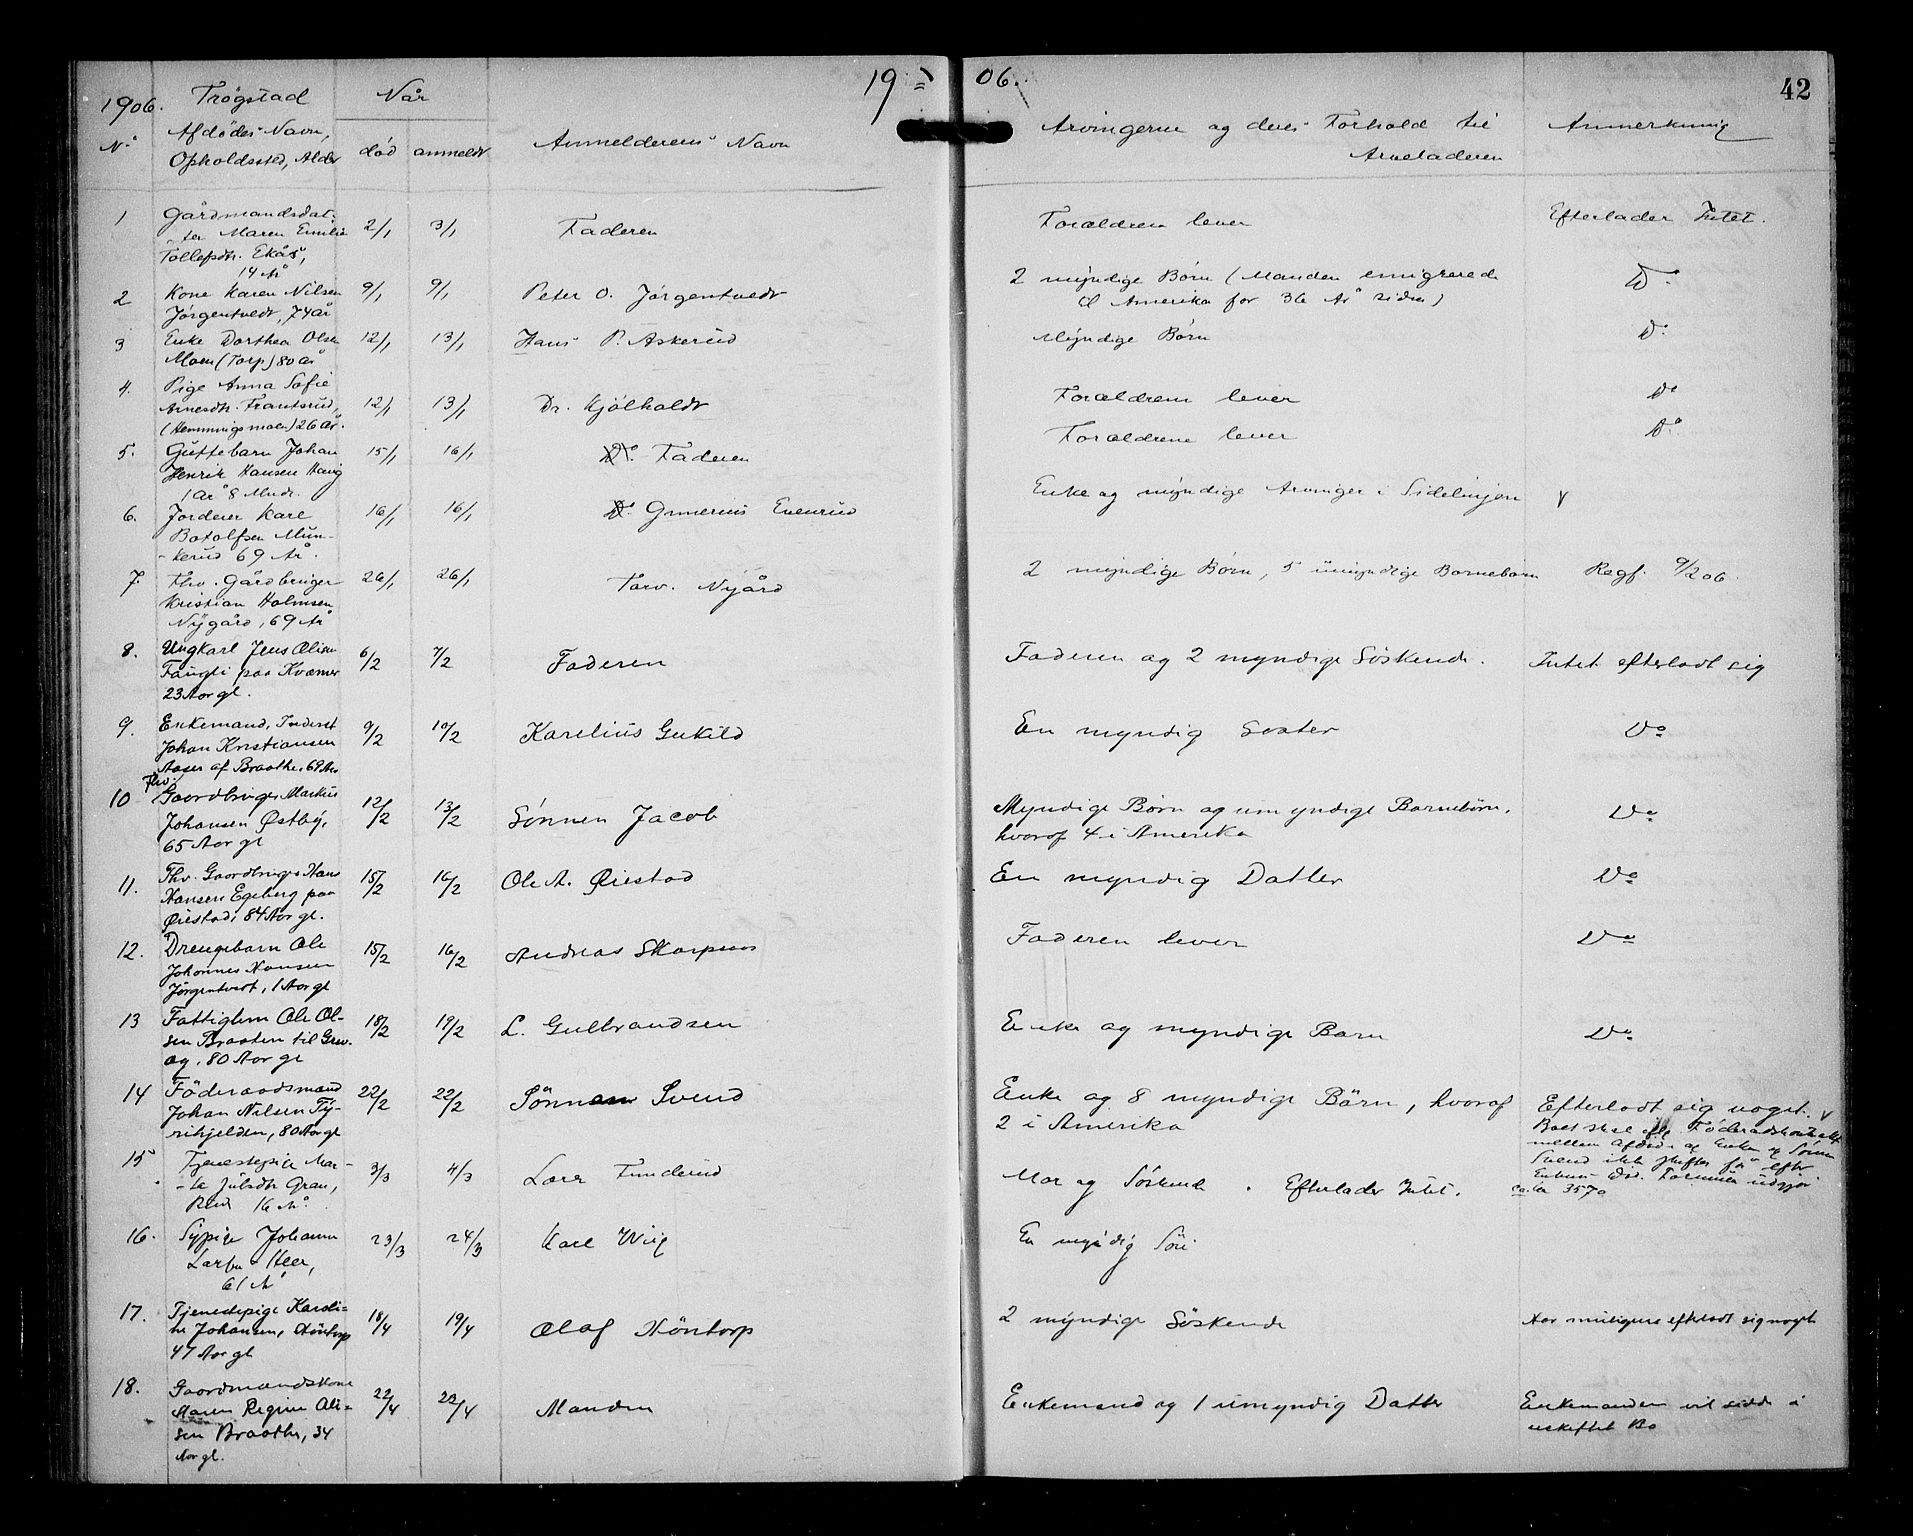 19 06.
42
1906. Trøgstad Når
No Afdødes Navn, Opholdssted, Alder død anmeldt Anmelderens Navn
Arvingerne og deres Forhold til Arveladeren Anmerkning
1 Gårdmandsdat-
ter Maren Emilie 2/1 3/1 Faderen Forældrene lever Efterlader Intet.
Tollefsdtr. Ekås,
14 År
2 Kone Karen Nilsen 9/1 9/1 Peter O. Jørgentvedt 2 myndige Børn (Manden emigrerede Do
Jørgentvedt, 74 år til Amerika for 36 År siden)
3 Enke Dorthea Olsen 12/1 13/1 Hans P. Askerud Myndige Børn Do
Moen (Torp) 80 år
4. Pige Anna Sofie
Arnesdtr. Frantsrud, 12/1 13/1 Dr. Kjølholdt Forældrene lever Do
(Hemmingsmoen) 26 år.
5. Guttebarn Johan 15/1 16/1 Do Faderen Forældrene lever Do
Henrik Hansen Haug
1 År 8 Mndr.
6. Jorderer Karl 16/1 16/1 Do Gunerius Evenrud Enke og myndige Arvinger i Sidelinjen
Botolfsen Mun-
-kerud 69 År.
7. Fhv. Gårdbruger 26/1 26/1 Torv. Nygård 2 myndige Børn, 5 umyndige Barnebarn Regf. 9/2 06.
Kristian Holmsen
Nygård, 69 År
8. Ungkarl Jens Olisen 6/2 7/2 Faderen Faderen og 2 myndige Søskende. Intet efterladt sig
Faugli paa Kværner
23 Aar gl.
9. Enkemand, Inderst 9/2 10/2 Karelius Gukild En myndig Søster Do
Johan Kristiansen
Aaser af Braathe, 69 Aar
10 Fhv. Gaardbruger Markus 12/2 13/2 Sønnen Jacob Myndige Børn og umyndige Barnebørn, Do
Johansen Østby, hvoraf 4 i Amerika
65 Aar gl
11. Fhv. Gaardbruger Hans 15/2 16/2 Ole A. Øiestad En myndig Datter Do
Hansen Egeberg paa
Øiestad, 84 Aar gl.
12. Drengebarn Ole 15/2 16/2 Andreas Skarpsno Faderen lever Do
Johannes Hansen
Jørgentvedt, 1 Aar gl
13 Fattiglem Ole Ol- 18/2 19/2 L. Gulbrandsen Enke og myndige Barn Do
sen Braaten til Grav-
og, 80 Aar gl
14 Föderaadsmand 22/2 22/2 Sønnen Svend Enke og 8 myndige Börn, hvoraf Efterladt sig noget.
Johan Nilsen Ty- 2 i Amerika Boet skal efter Föderaadskontrakt
rihjelden, 80 Aar gl mellem Afdøde og Enken og Sönnen
Svend ikke skiftes før efter
Enkens Død. Formuen udgjør
ca. kr 3570
15 Tjenestepige Mar- 3/3 4/3 Lars Funderud Mor og Søskende. Efterlader Intet.
-te Julsdtr Gran,
16 År.
16. Sypige Johanne 23/3 24/3 Karl Wiig En myndig Søn
Larsen Heer,
61 År
17. Tjenestepige Karoli- 18/4 19/4 Olaf Höntorp 2 myndige Söskende Har muligens efterladt sig noget
ne Johansen, Höntorp
47 Aar gl
18. Gaardmandskone 22/4 22/4 Manden Enkemand og 1 umyndig Datter Enkemanden vil sidde i
Maren Regine Oli- uskiftet Bo
sen Braathe, 34
Aar gl.